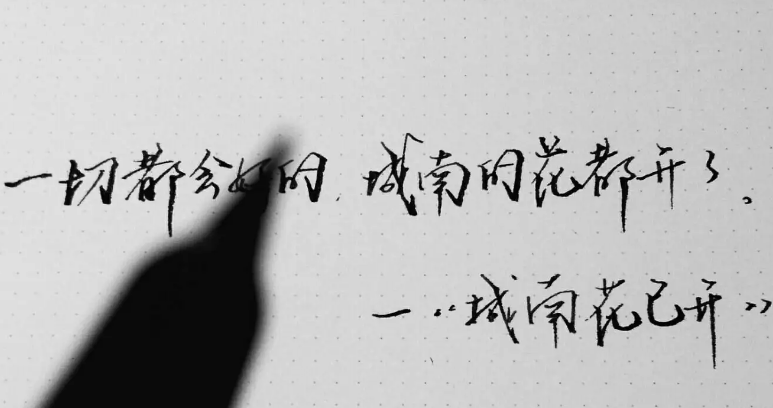 一切都会好的 城南的花都开了。
一“城南花已开”